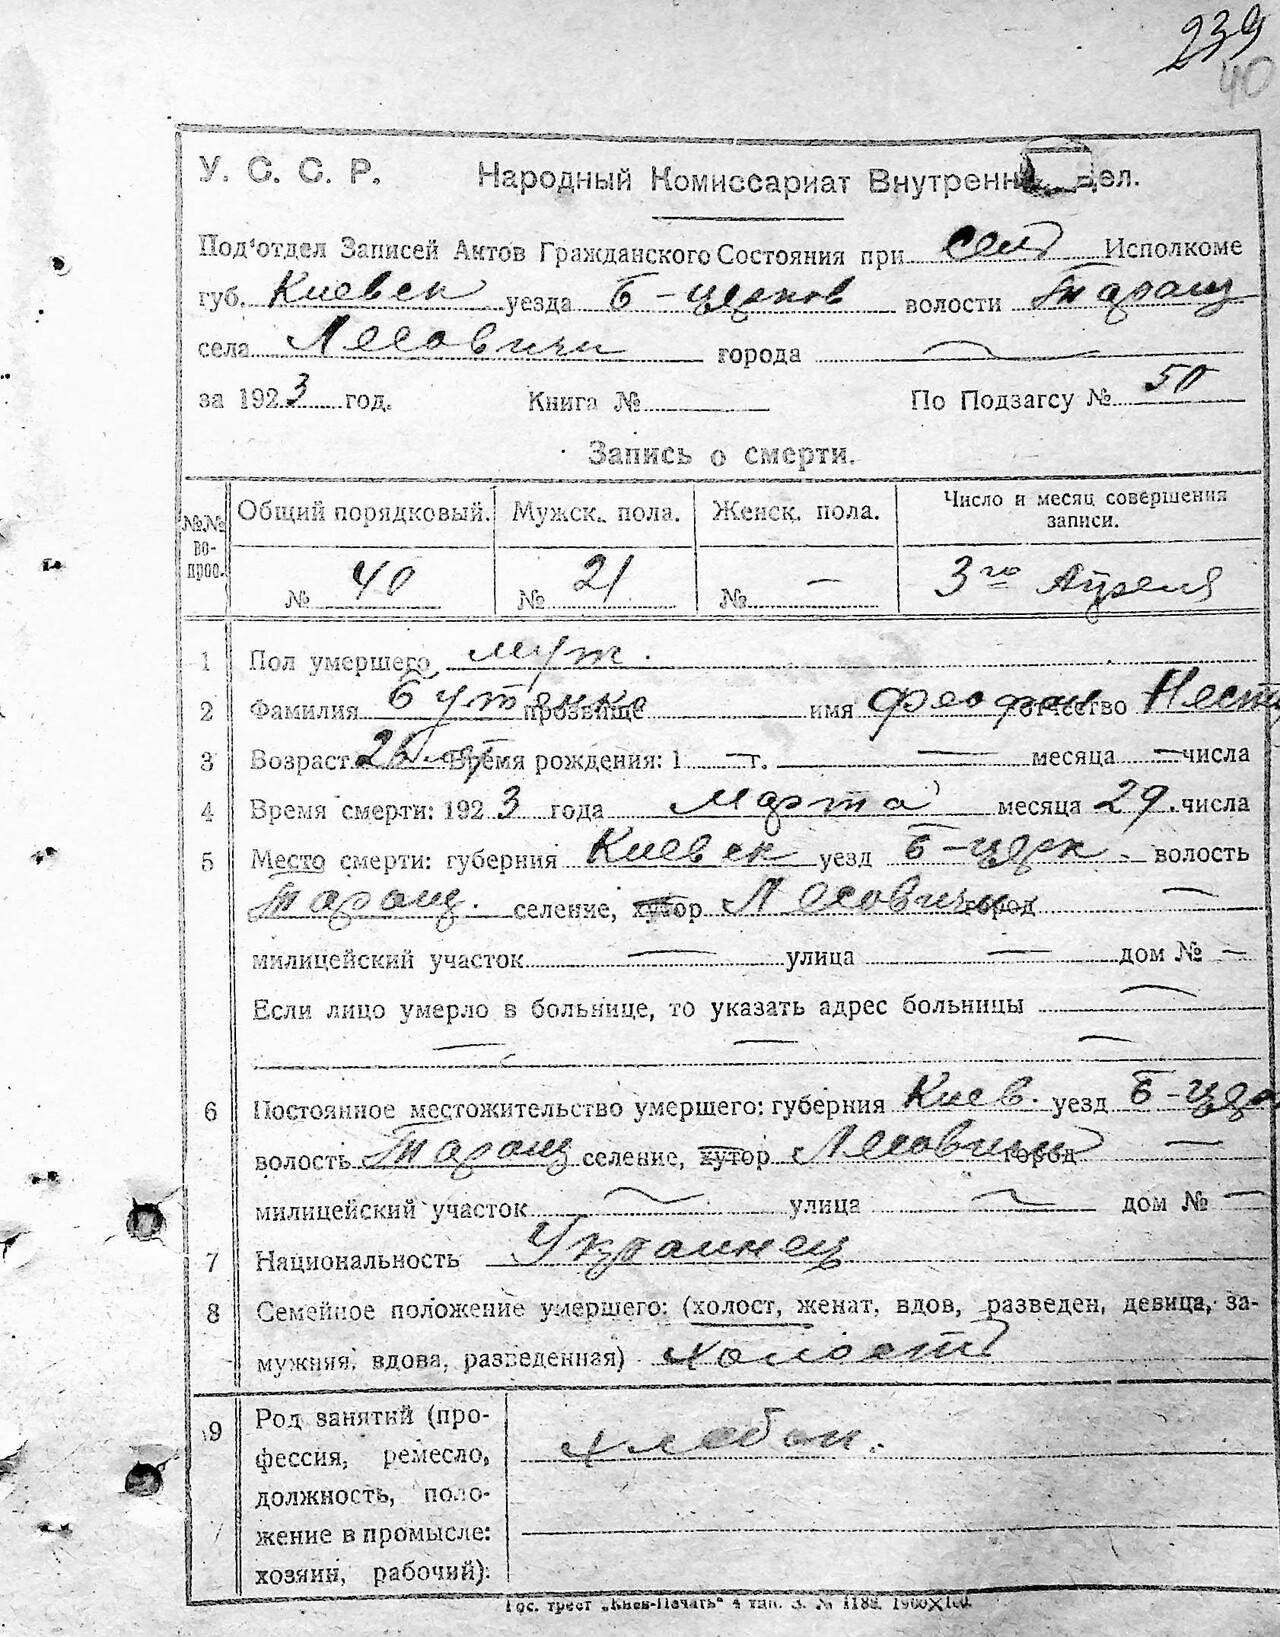 239
40
У. С. С. Р. Народный Комиссариат Внутренн Дел.
Под'отдел Записей Актов Гражданского Состояния при сель Исполкоме
губ. Киевск уезда Б-церков волости Таращ
села Лесовичи города —
за 1923 год. Книга № По Подзагсу № 50
Запись о смерти.
№№ вопрос. Общий порядковый. Мужск. пола. Женск. пола. Число и месяц совершения записи.
№ 40 № 21 № — 3го Апреля
1 Пол умершего муж.
2 Фамилия Бутенко прозвище имя Феофан отчество Нест
3 Возраст 26 лет Время рождения: 1 — г. — месяца — числа
4 Время смерти: 1923 года Марта месяца 29 числа
5 Место смерти: губерния Киевск уезд Б-церк. волость
Таращ. селение, хутор Лесовичи город —
милицейский участок — улица — дом № —
Если лицо умерло в больнице, то указать адрес больницы —
— — —
6 Постоянное местожительство умершего: губерния Киев. уезд Б-церк
волость Таращ селение, хутор Лесовичи город —
милицейский участок — улица — дом № —
7 Национальность Украинец
8 Семейное положение умершего: (холост, женат, вдов, разведен, девица, за-
мужняя, вдова, разведенная) холост
9 Род занятий (про-
фессия, ремесло, хлебоп.
должность, поло-
жение в промысле:
хозяин, рабочий):
Гос. трест „Киев-Печать" 4 тип. З. № 1182. 1900×100.